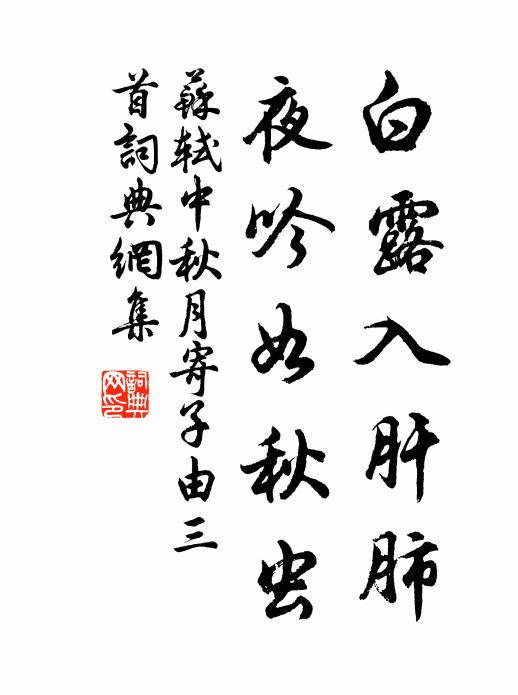 白露入肝肺
夜吟如秋虫
蘇軾中秋月寄子由三
首詞典網集
詞典
网印